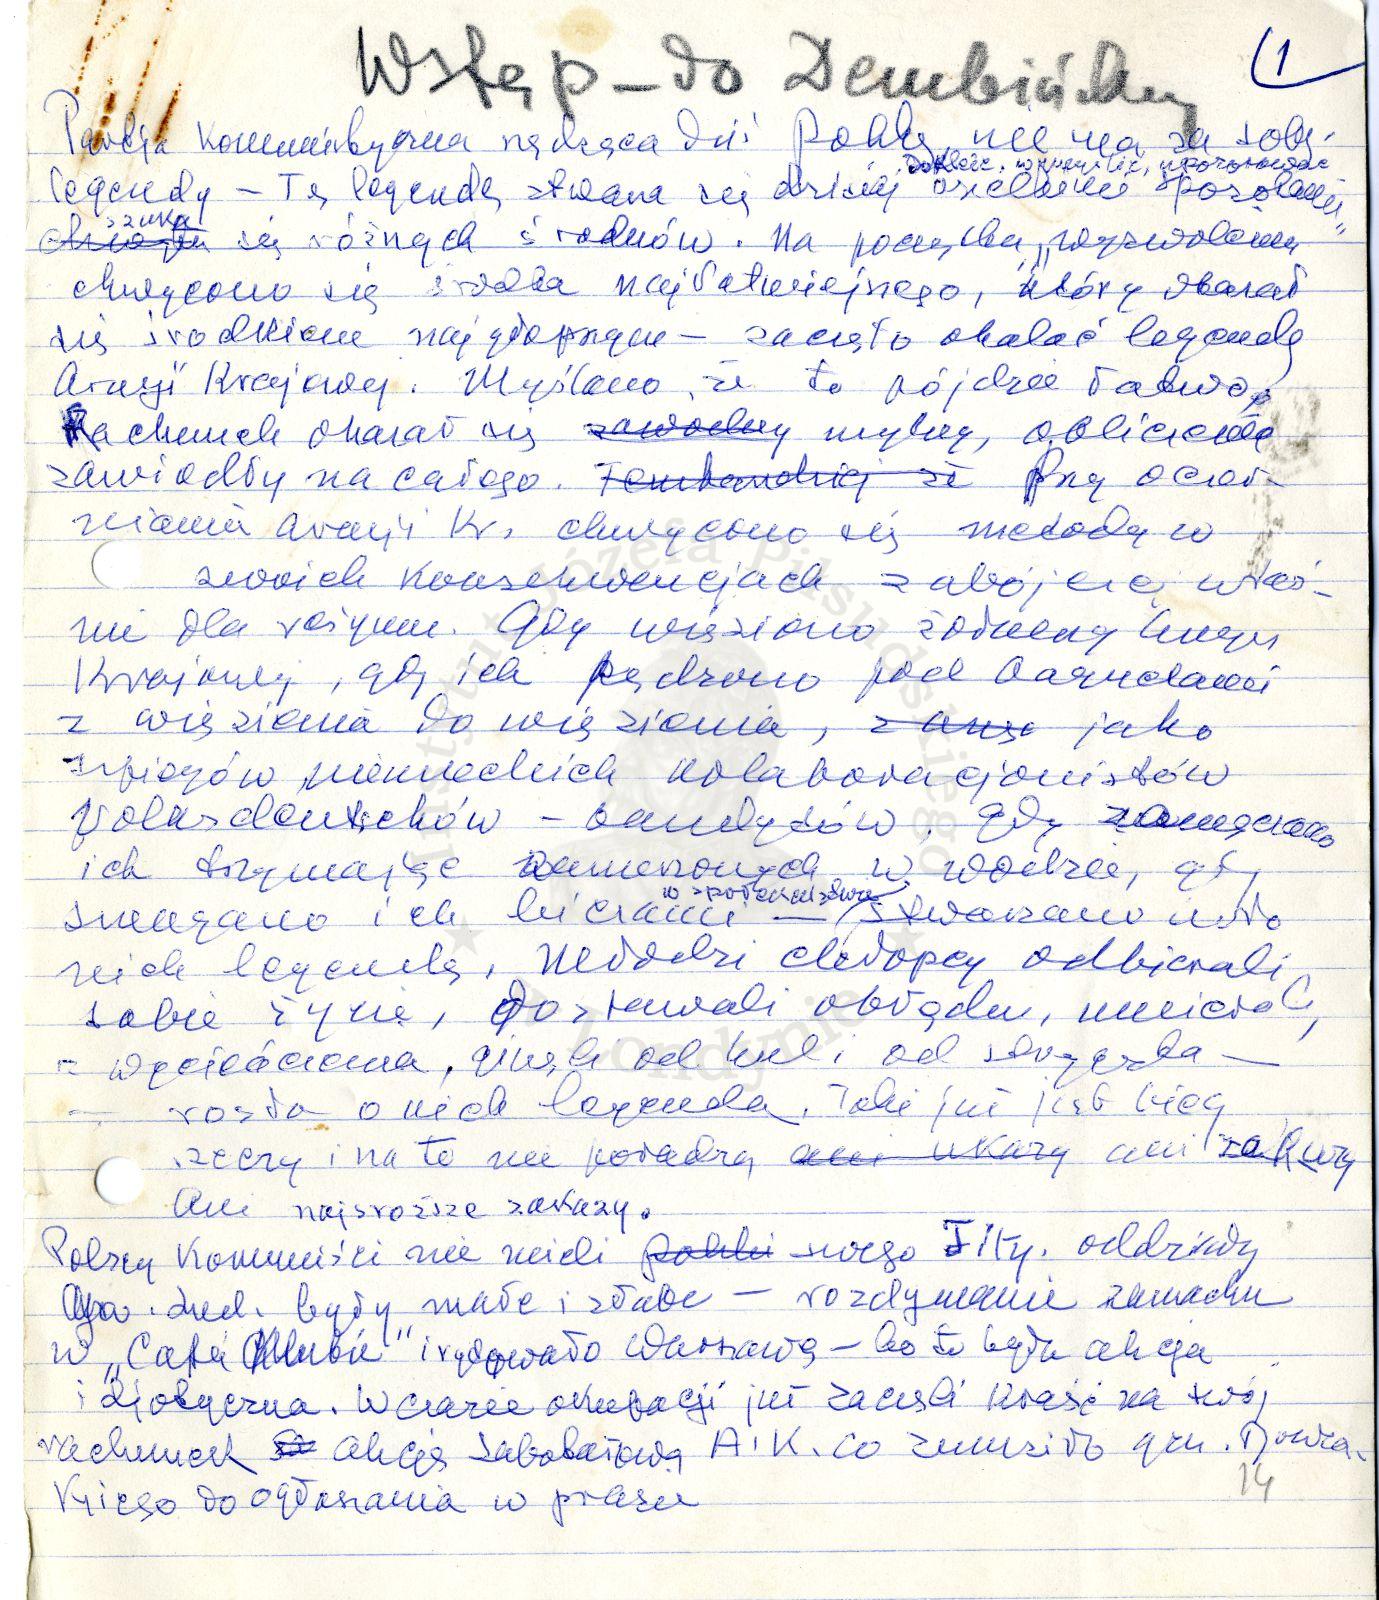 Wstęp – do Dembińskiej
1
Partja Komunistyczna rządząca dziś Polską nie ma za sobą
legendy – Tę legendę stwarza się dzisiaj wszelkimi sposobami
szuka
się różnych środków. Na początku „wyzwolenia"
chwycono się środka najłatwiejszego, który okazał
się środkiem najgłupszym – zaczęto obalać legendę
Armji Krajowej. Myślano, że to pójdzie łatwo,
Rachunek okazał się zawodny mylny, obliczenia
zawiodły na całego. Przy oczer-
nianiu Armji Kr. chwycono się metody w
swoich konsekwencjach zabójczej właś-
nie dla reżymu. Gdy więziono żołnierzy Armji
Krajowej, gdy ich pędzono pod bagnetami
z więzienia do więzienia, jako
szpiegów niemieckich kolaboracjonistów
Volksdeutschów – bandytów, gdy zamęczano
ich trzymając zanurzonych w wodzie, gdy
w społeczeństwie
smagano ich biczami – stwarzano wokół
nich legendę. Młodzi chłopcy odbierali
sobie życie, dostawali obłędu,
z wycieńczenia, ginęli od kul i od stryczka –
– rosła o nich legenda. Taki już jest bieg
rzeczy i na to nie poradzą ani ukazy ani
Ani najsroższe zakazy.
Polscy Komuniści nie mieli polski swego Tity. oddziały
Gwar. Lud. były małe i słabe – rozdymanie zamachu
w „Café Klubie" irytowało Warszawę – bo to była akcja
idjotyczna. W czasie okupacji już zaczęli kraść na swój
rachunek akcję sabotażową A.K. co zmusiło gen.
do ogłoszenia w prasie
14
Instytut Józefa Piłsudskiego
w Londynie